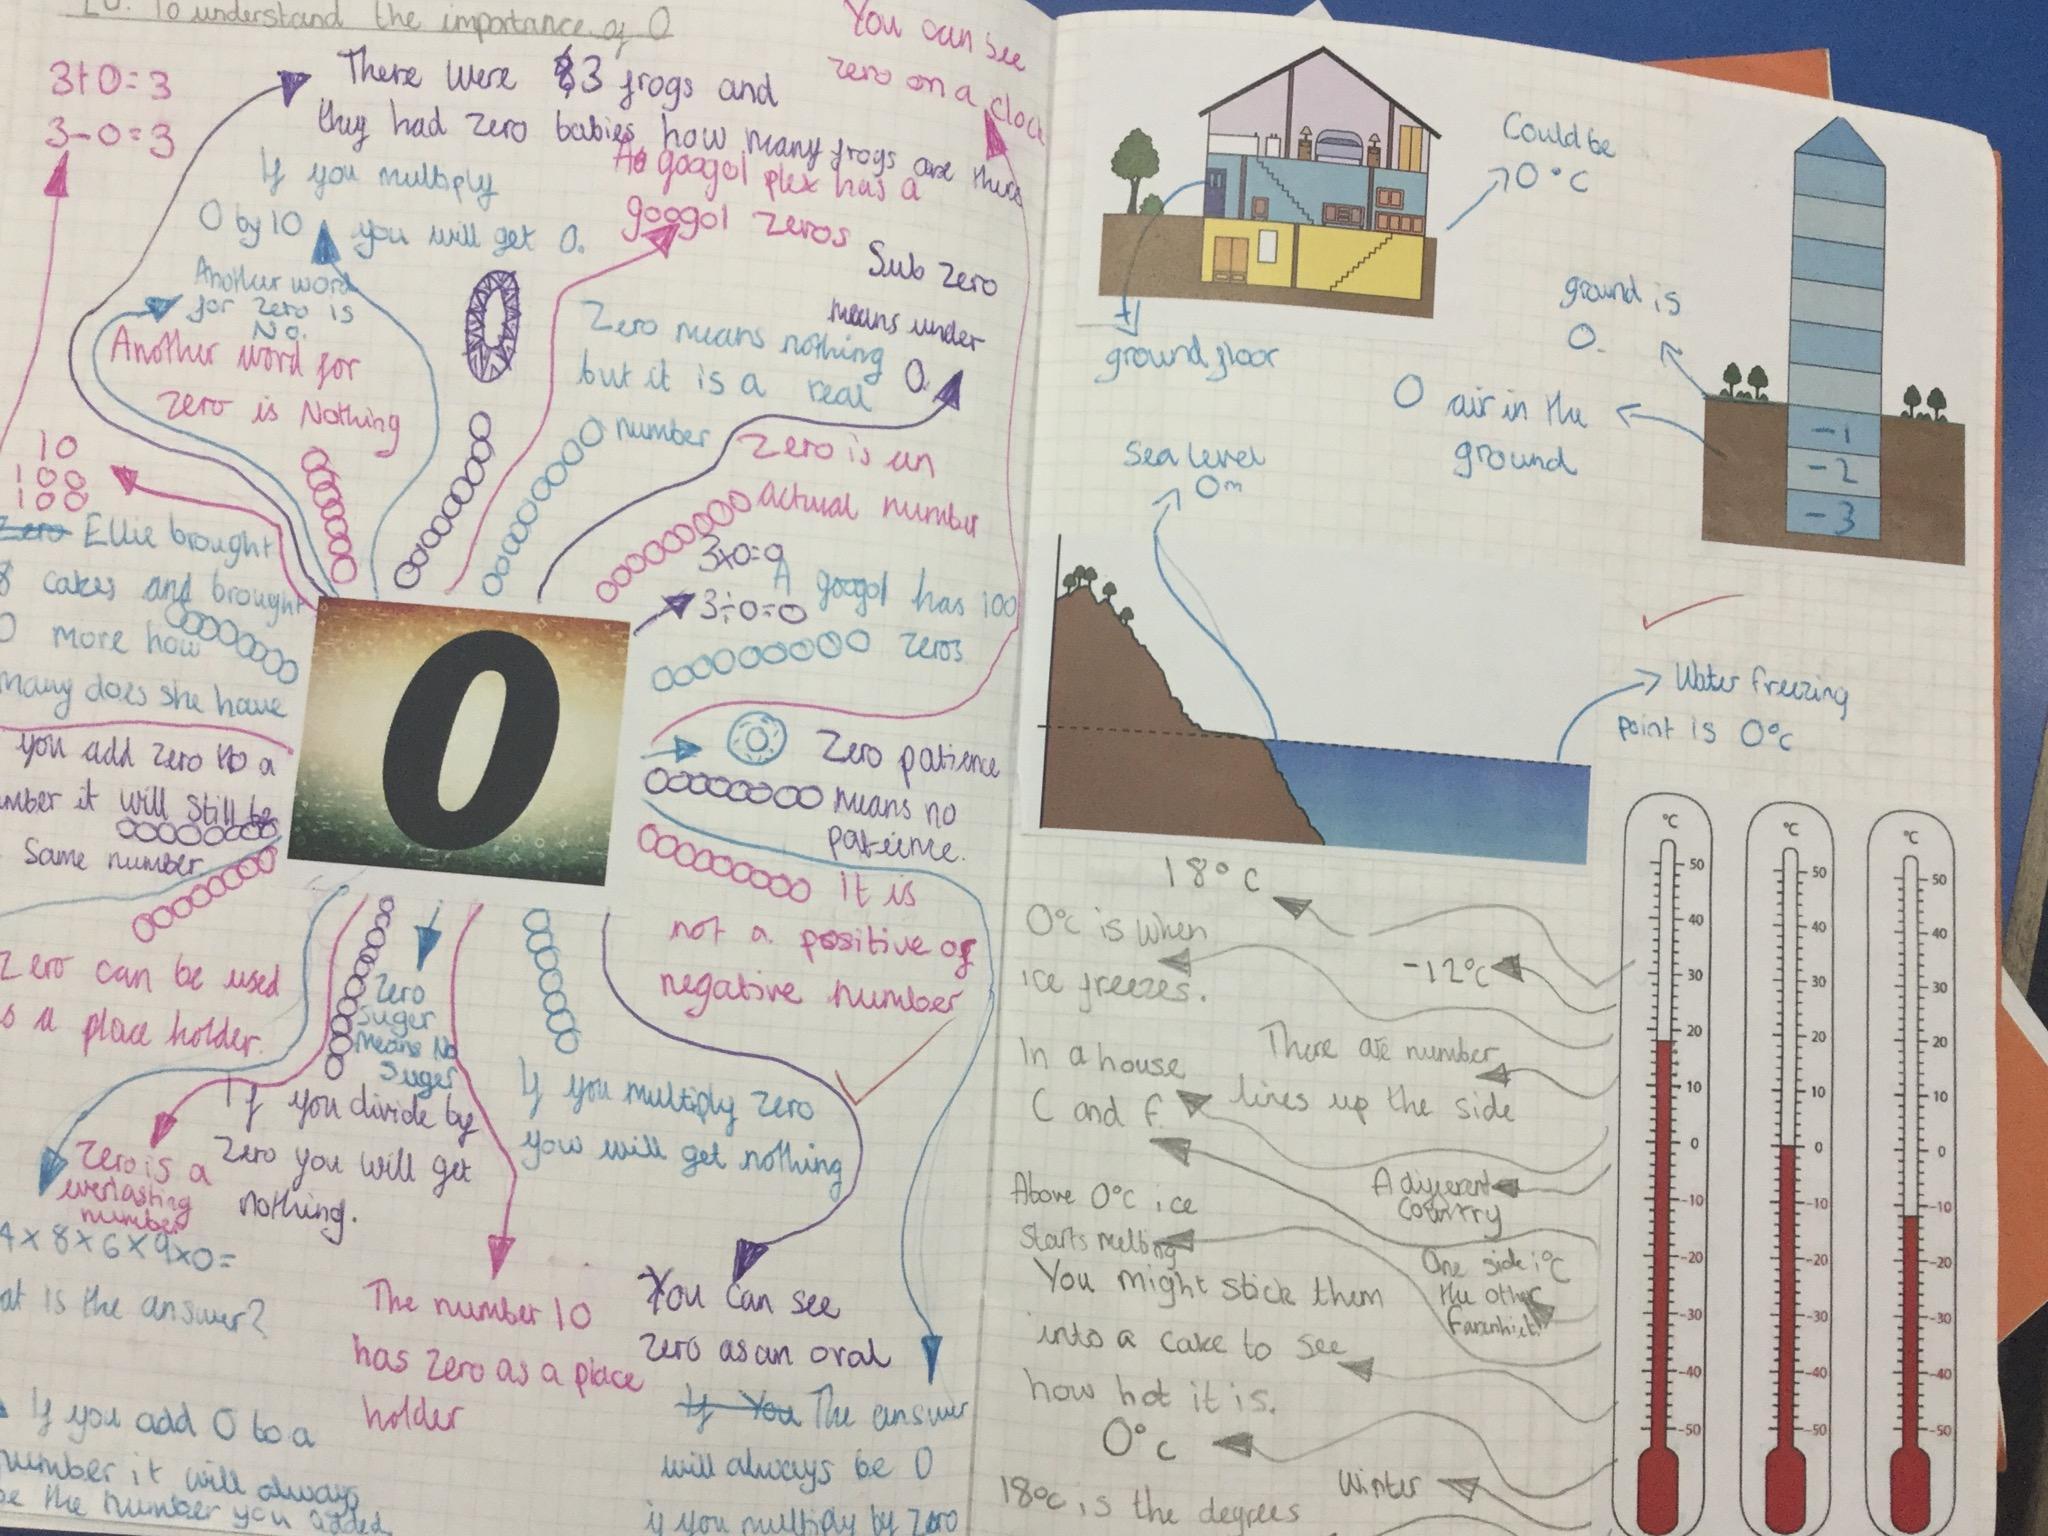 LO: To understand the importance of 0
3+0=3
3-0=3
There were 3 frogs and
they had zero babies how many frogs are there
You can see
zero on a clock
If you multiply
0 by 10 you will get 0.
A googol plex has a
googol zeros
Another word
for zero is
No.
Another word for
zero is Nothing
Sub zero
means under
0.
Zero means nothing
but it is a real
number
Zero is an
actual number
10
100
100
Zero Ellie brought
8 cakes and brought
0 more how
many does she have
3÷0=0
A googol has 100
zeros
0
you add zero to a
mber it will still be
same number
Zero patience
means no
patience.
It is
not a positive or
negative number
Zero can be used
s a place holder.
Zero
Suger
Means No
Suger
If you divide by
zero you will get
nothing.
If you multiply zero
you will get nothing
Zero is a
everlasting
number
4×8×6×9×0=
at is the answer?
The number 10
has zero as a place
holder
You can see
zero as an oral
If You The answer
will always be 0
if you multiply by zero
If you add 0 to a
number it will always
be the number you added
Could be
0°C
ground floor
ground is
0.
0 air in the
ground
-1
-2
-3
Sea level
0m
Water freezing
point is 0°c
18°C
0°c is when
ice freezes.
-12°c
In a house
C and f.
There are number
lines up the side
Above 0°c ice
starts melting
A different
country
One side is °C
the other
farenhiet
You might stick them
into a cake to see
how hot it is.
0°c
Winter
18°c is the degrees
°C
50
40
30
20
10
0
-10
-20
-30
-40
-50
°C
50
40
30
20
10
0
-10
-20
-30
-40
-50
°C
50
40
30
20
10
0
-10
-20
-30
-40
-50